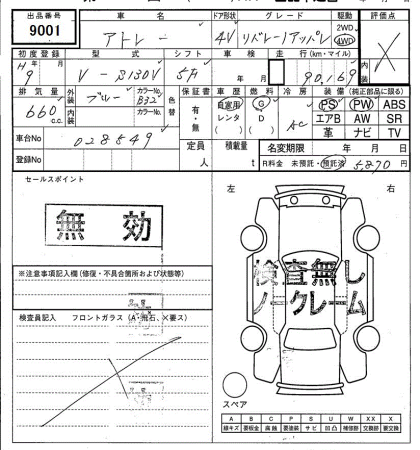 出品番号 車名 ドア形状 グレード 駆動 評価点
9001 アトレー 4V リバレーノアッパレ 2WD 4WD
初度登録 型式 シフト 車検 走行(km・マイル) 内装
H9年 月 V-S130V 5F 年 月 90,169
排気量 外装 カラーNo. 色替 保証書 車歴 燃料 冷房 装備(純正部品に限る)
660 c.c. ブルー B32 有・無 自家用 G AC PS PW ABS
内装 カラーNo. レンタ D エアB AW SR
( ) ( ) 革 ナビ TV
車台No 028549 定員 積載量 名変期限 年 月 日
登録No 人 t R料金 未預託・預託済 5,870円
セールスポイント
無効
左 右
※注意事項記入欄(修復・不具合箇所および状態等)
検査無し
ノークレーム
検査員記入 フロントガラス(A・飛石、×要ス)
スペア
A B C P S U W X XX
線キズ 要板金 腐蝕 要塗装 サビ 凹凸 補修跡 要交換